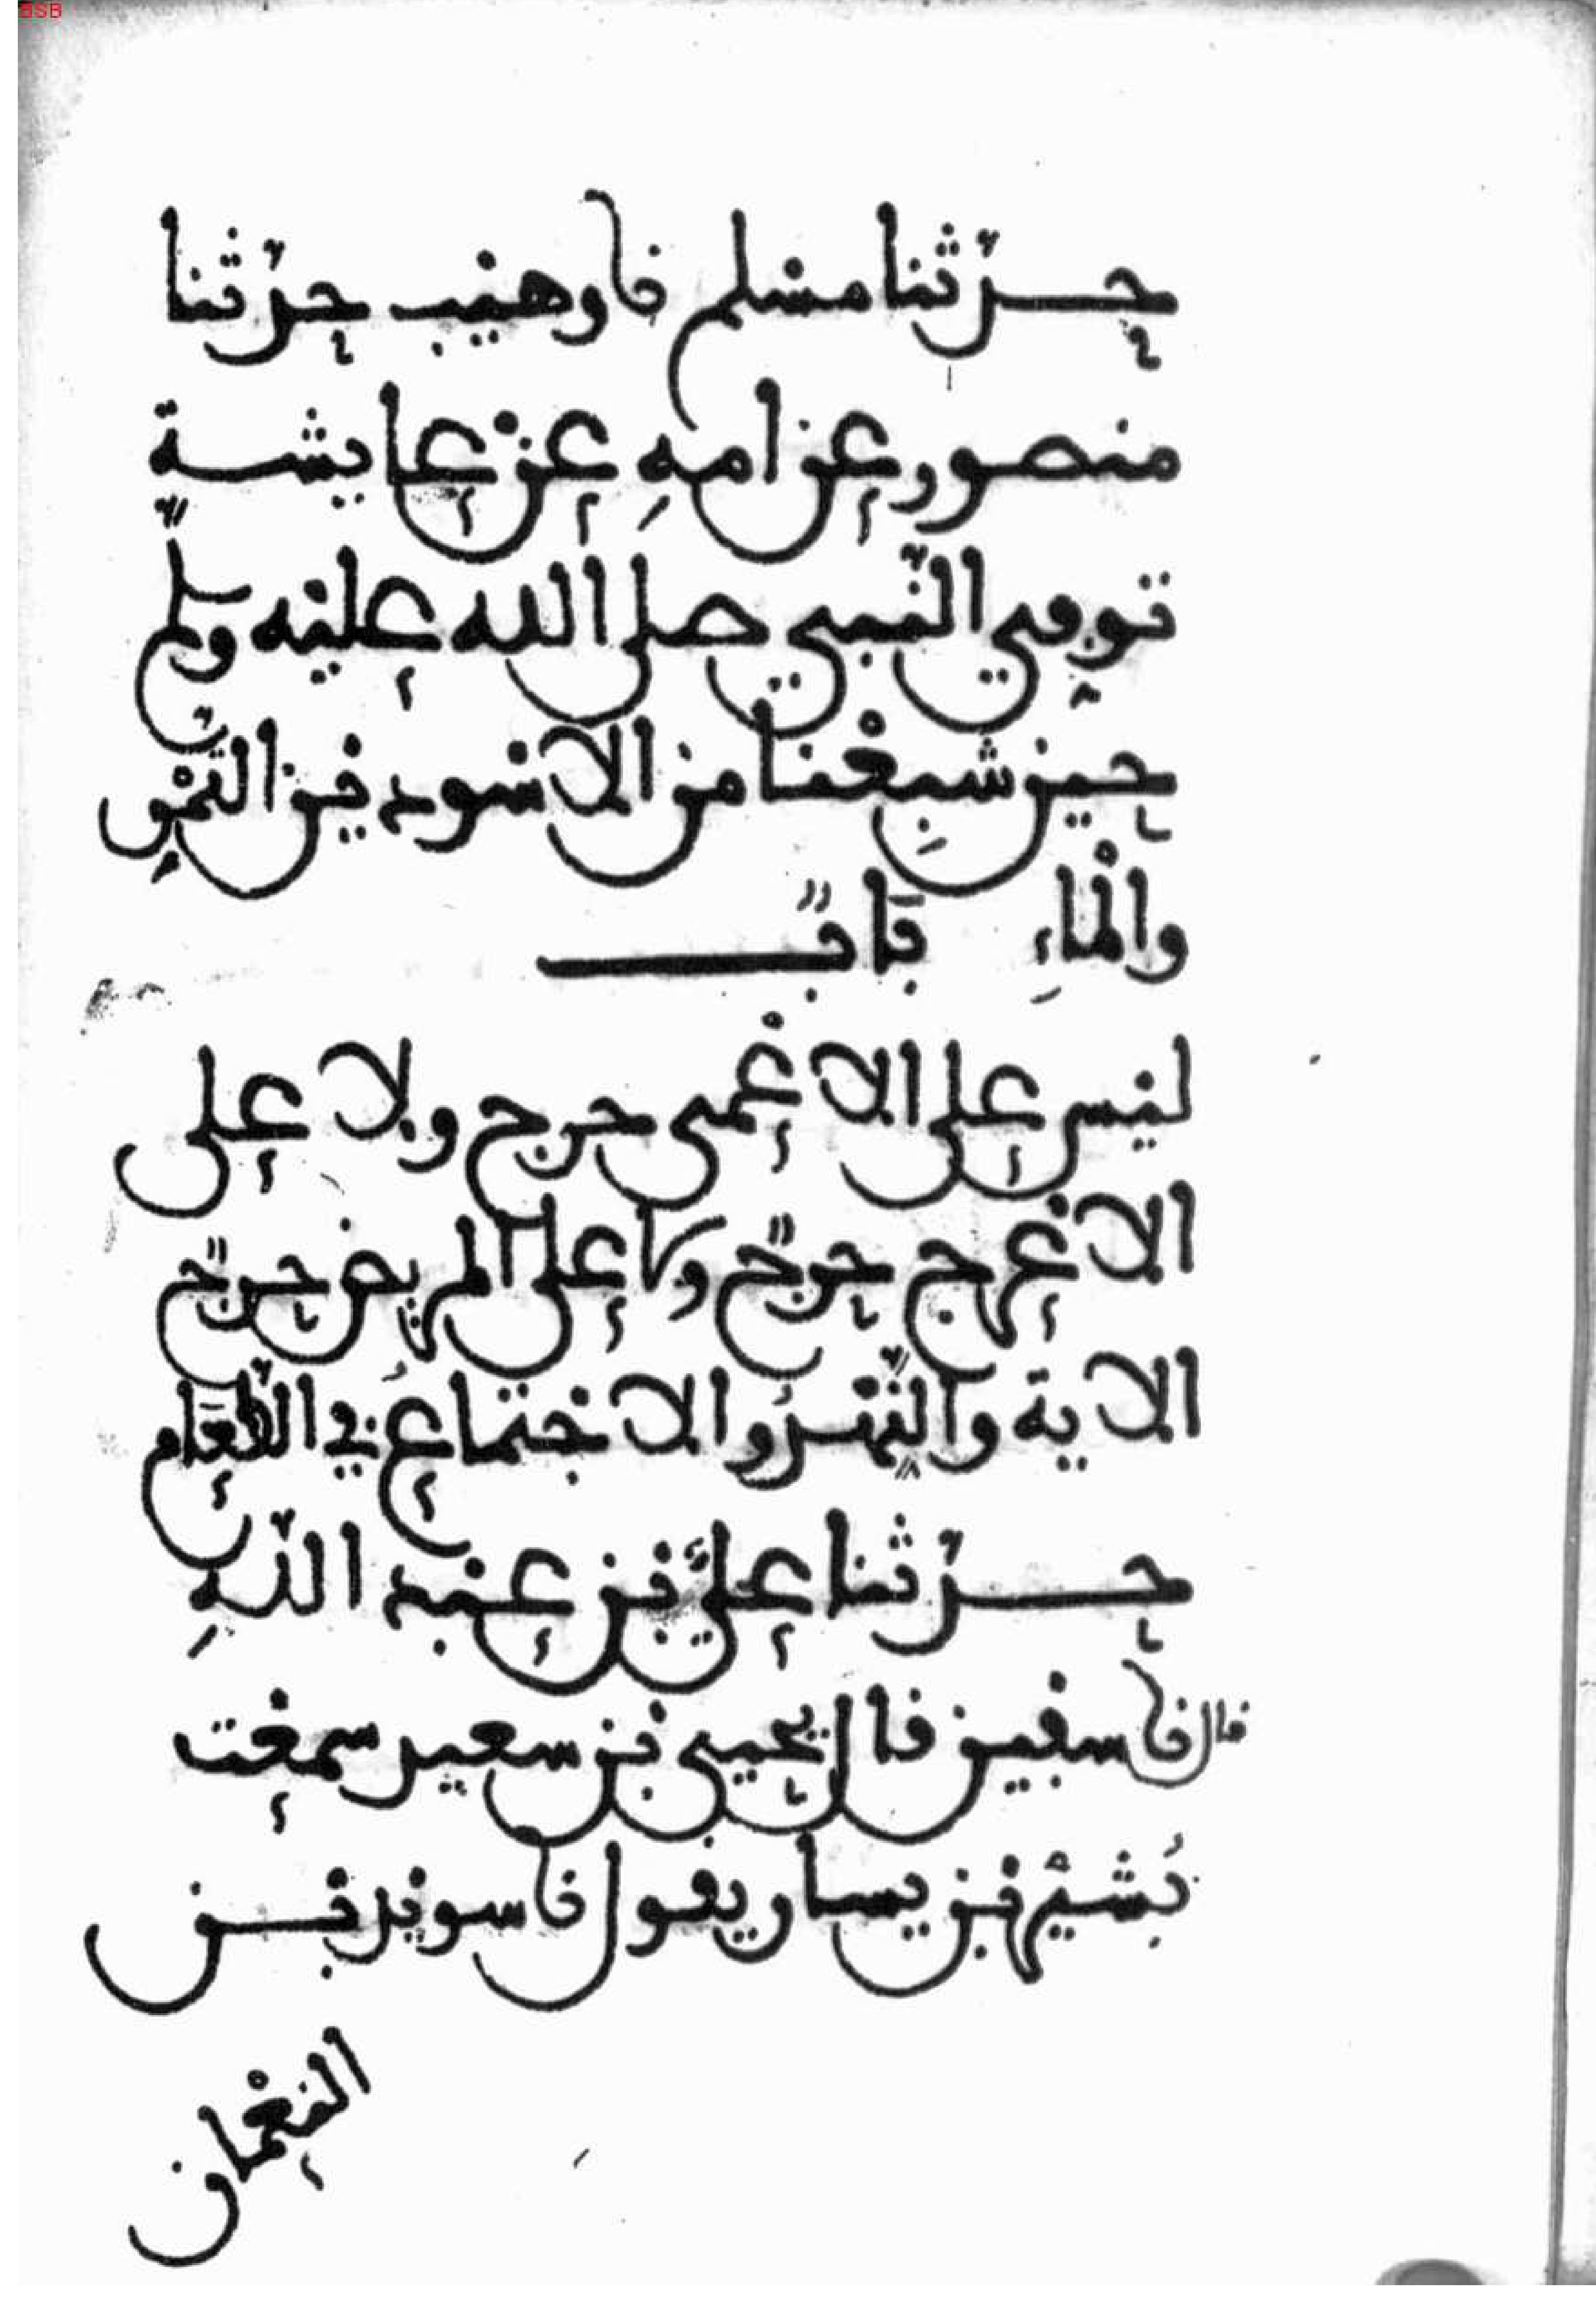 BSB
حدّثنا مسْلم نا وهيْب حدّثنا
منصور عن امهِ عنْ عايشة
توفي النّبي صلى الله عليْه وسلّم
حين شبِعْنا من الاسْوديْن التّمْرِ
والْماءِ بَابٌ
ليْس على الاعْمى حرج ولا على
الاعْرج حرجٌ ولا على المريض حرجٌ
الاية والنِّهْدُ والاجتماعُ في الطَّعَام
حدّثنا عليُّ بْن عبْد اللّهِ
قال نا سفين قال يحيى بْن سعيد سمعْت
بُشيْر بْن يسار يقول نا سويد بْن
النعْمان